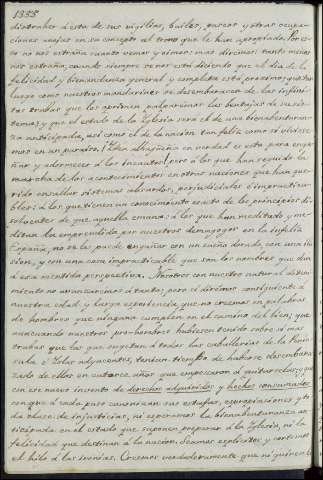 1835
distraher á esta de sus vigilias, bailes, paseos y otras ocupa-
ciones anejas en su concepto al tono que le han apropiado. Por es-
to no nos estraña cuanto vemos y oimos: mas diremos: tanto menos
nos estraña, cuando siempre se nos está diciendo que el dia de la
felicidad y bienandanza general y completa está proximo; que tan
luego como nuestros mandarines se desembaracen de las infini-
tas trabas que les oprimen palparémos las ventajas de su sis-
tema; y que el estado de la Yglesia será el de una bienaventuran-
za anticipada, asi como el de la nacion tan feliz como si viviese-
mos en un paraiso. ¡ alhagüeña en verdad es esta para enga-
ñar y adormecer á los incautos! pero á los que han seguido la
marcha de los acontecimientos en otras naciones que han que-
rido ensallar sistemas absurdos, perjudiciales é impractica-
bles: á los que tienen un conocimiento exacto de los principios di-
solventes de que aquella emana: á los que han meditado y me-
ditan la emprendida por nuestros demagogos en la infeliz
España, no se les puede engañar con un sueño dorado, con una ilu-
sion, y con una cosa impracticable que son los nombres que dan
á esa mentida perspectiva. Nosotros con nuestro natural discer-
nimiento no avanzaremos á tanto; pero si dirémos consiguiente á
nuestra edad y larga esperiencia, que no creemos en palabras
de hombres que ninguna cumplen en el camino del bien; que
aun cuando nuestros pro-hombres hubiesen tenido sobre sí mas
trabas que las que sujetan á todas las caballerias de la Penin-
sula é Yslas adyacentes, tendian tiempo de haberse desembara-
zado de ellas en catorce años que empezaron á quitarselas; y que
con ese nuevo invento de derechos adquiridos y hechos consumados
con que á cada paso canonizan sus estafas, espropiaciones y to-
da clase de injusticias, ni esperamos la bienaventuranza an-
ticipada en el estado que suponen preparar á la Yglesia, ni la
felicidad que destinan á la nacion. Seamos esplicitos y cortemos
el hilo á las ironias. Creemos verdaderamente que ni quieren